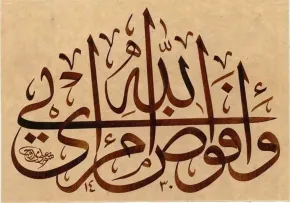 وَأُفَوِّضُ أَمْرِي إِلَى اللّٰهِ
١٤٣٠